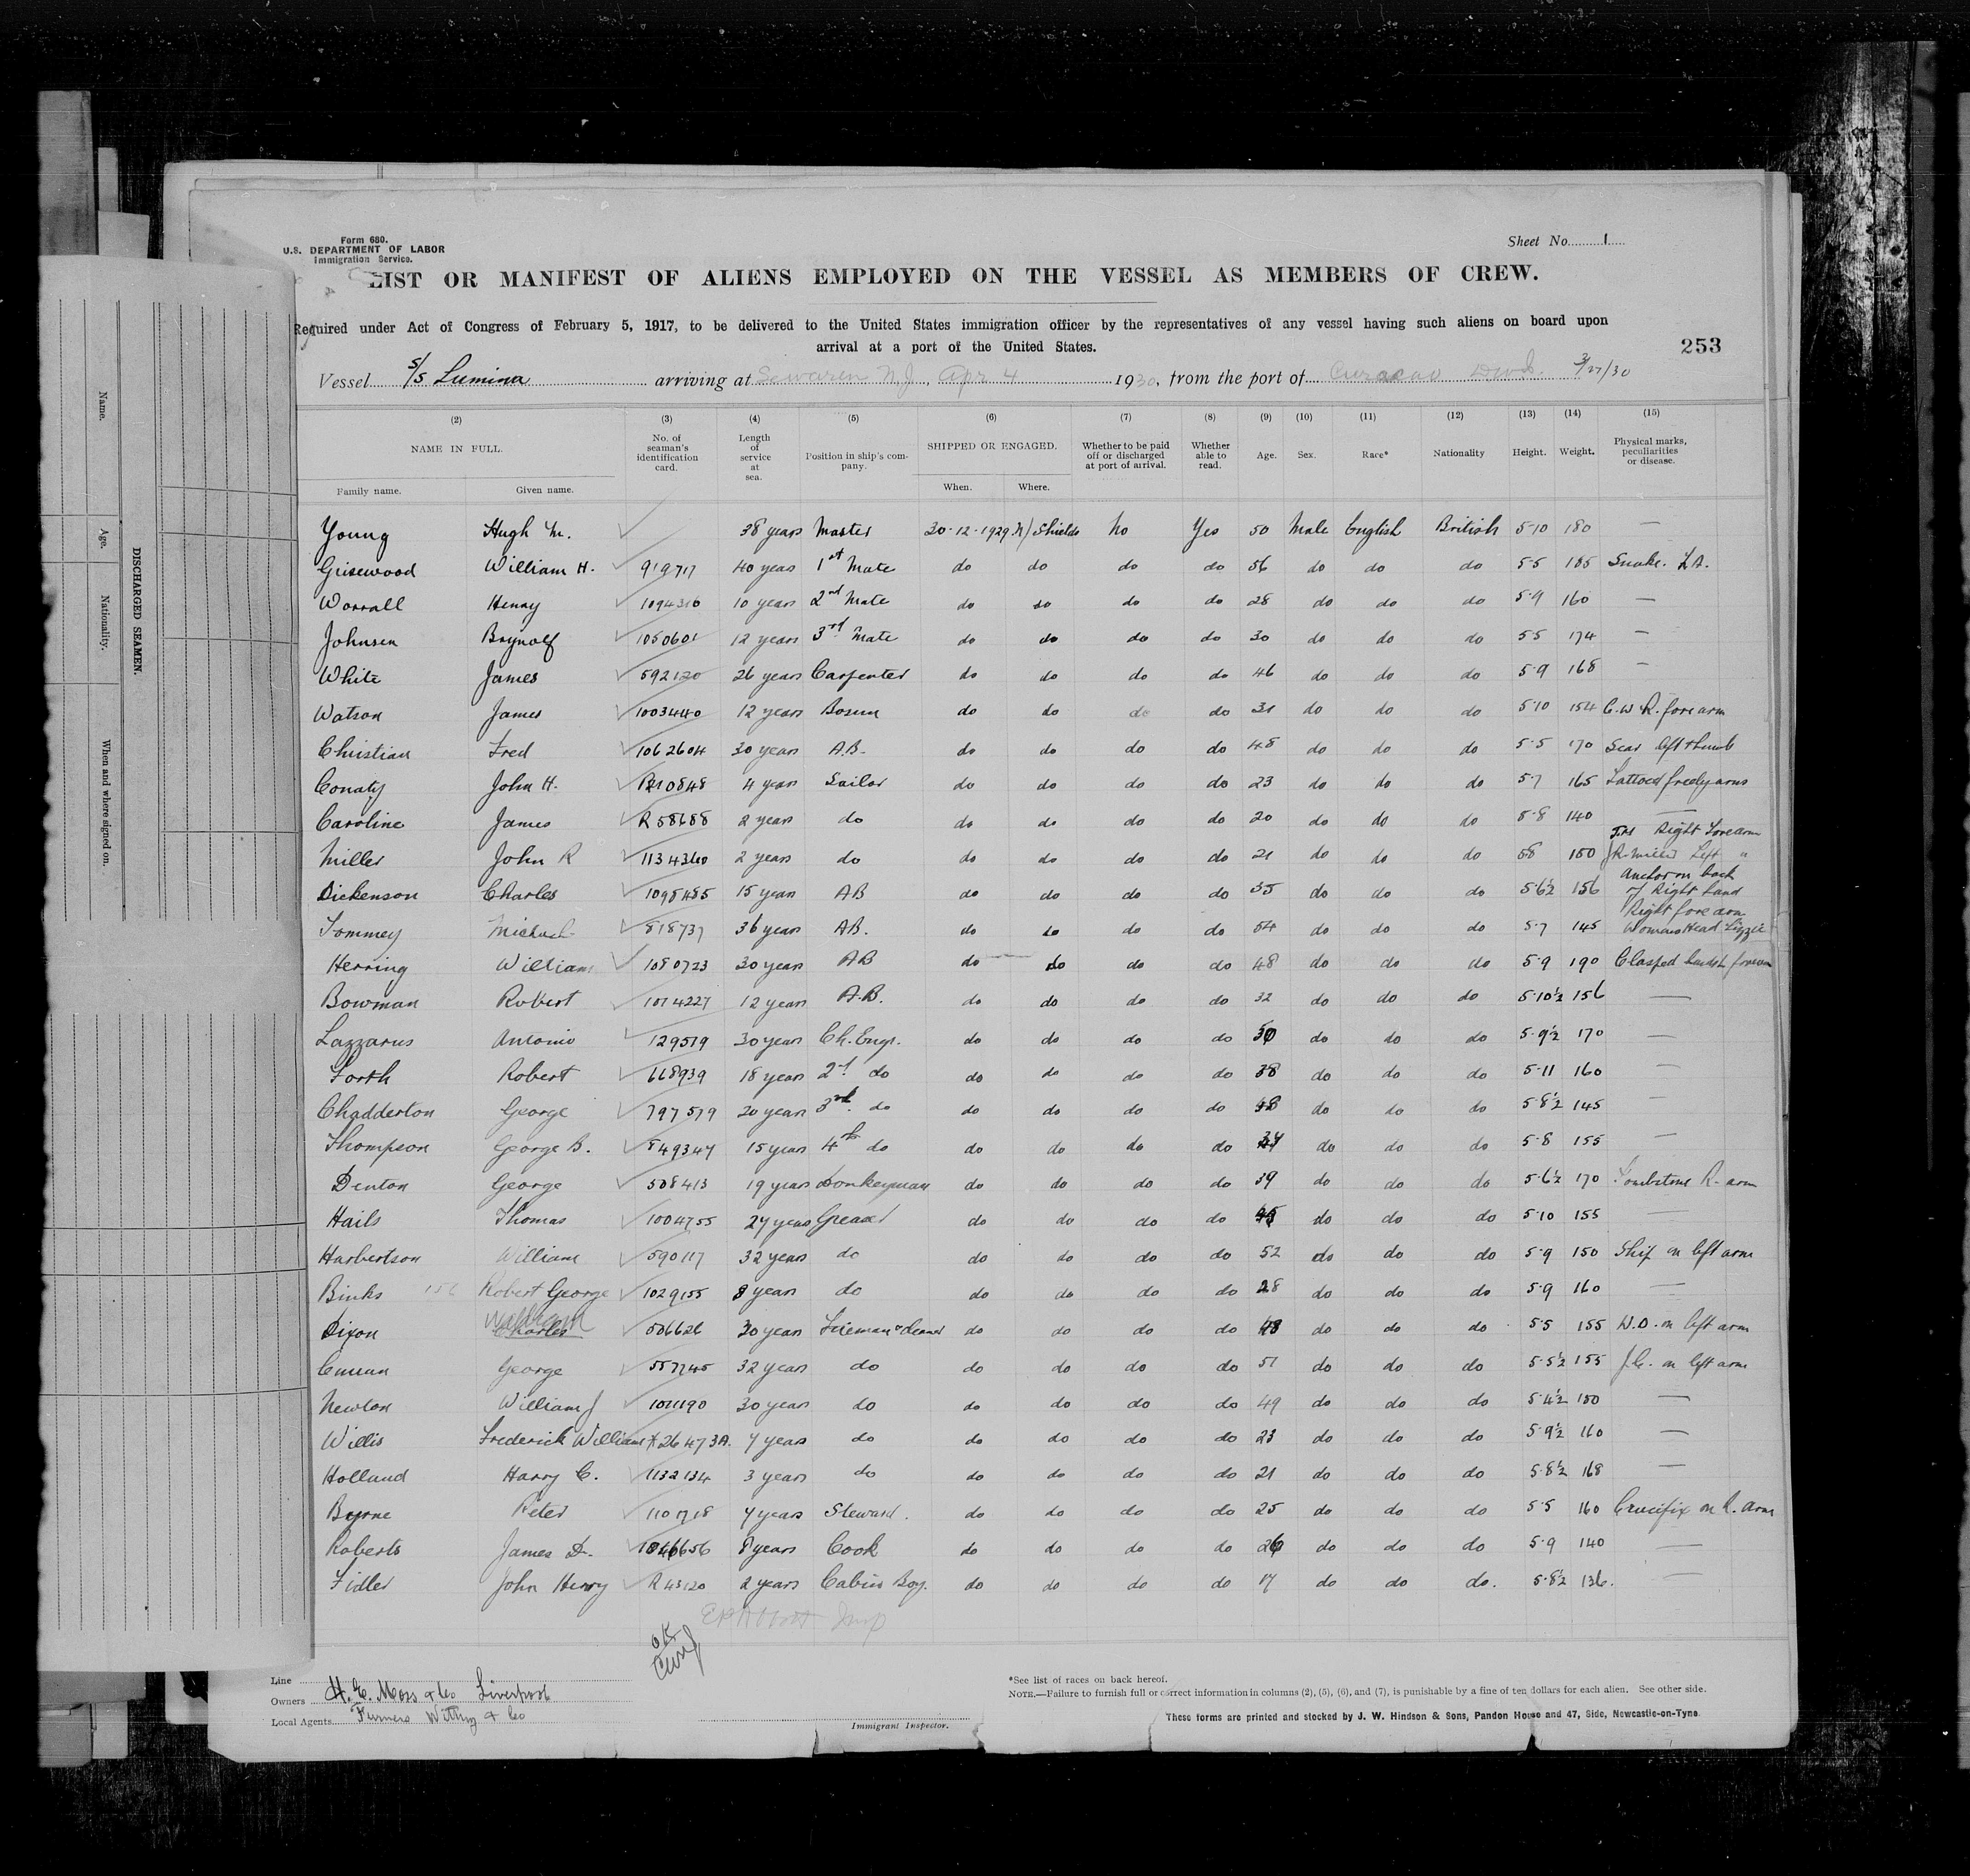 Form 680.
U.S. DEPARTMENT OF LABOR
Immigration Service.
Sheet No. 1
LIST OR MANIFEST OF ALIENS EMPLOYED ON THE VESSEL AS MEMBERS OF CREW.
Required under Act of Congress of February 5, 1917, to be delivered to the United States immigration officer by the representatives of any vessel having such aliens on board upon
arrival at a port of the United States.
253
Vessel S/S Lumina arriving at Sewaren N.J., Apr 4 1930, from the port of Curacao 3/27/30
(2) (3) (4) (5) (6) (7) (8) (9) (10) (11) (12) (13) (14) (15)
NAME IN FULL. No. of seaman's identification card. Length of service at sea. Position in ship's company. SHIPPED OR ENGAGED. Whether to be paid off or discharged at port of arrival. Whether able to read. Age. Sex. Race* Nationality Height. Weight. Physical marks, peculiarities or disease.
Family name. Given name. When. Where.
Young Hugh M. 38 years Master 30-12-1929 N/Shields No Yes 50 Male English British 5-10 180 —
Grisewood William H. 919717 40 years 1st Mate do do do do 56 do do do 5-5 185 Snake. L.A.
Worrall Henry 1094316 10 years 2nd Mate do do do do 28 do do do 5-9 160 —
Johnsen Brynolf 1050601 12 years 3rd Mate do do do do 30 do do do 5-5 174 —
White James 592120 26 years Carpenter do do do do 46 do do do 5-9 168 —
Watson James 1003440 12 years Bosun do do do do 31 do do do 5-10 154 C.W R. fore arm
Christian Fred 1062604 30 years A.B. do do do do 48 do do do 5-5 170 Scar left thumb
Conaty John H. 4 years Sailor do do do do 23 do do do 5-7 165 Tattoed freely arms
Caroline James R 58688 2 years do do do do do 20 do do do 5-8 140 —
Miller John R 1134360 2 years do do do do do 21 do do do 5-8 150 Right Forearm
Left "
Dickenson Charles 1095485 15 years AB do do do do 35 do do do 5-6½ 156 Anchor on back
of Right hand
Tommey Michael 818737 36 years AB. do do do do 54 do do do 5-7 145 Right fore arm
Womans Head Lizzie
Herring William 1080723 30 years AB do do do do 48 do do do 5-9 190 Clasped hands L forearm
Bowman Robert 1014227 12 years A.B. do do do do 32 do do do 5-10½ 156 —
Lazzarus Antonio 129519 30 years Ch. Engr. do do do do 50 do do do 5-9½ 170 —
Forth Robert 668939 18 years 2nd do do do do do 38 do do do 5-11 160 —
Chadderton George 797519 20 years 3rd do do do do do 48 do do do 5-8½ 145 —
Thompson George B. 849347 15 years 4th do do do do do 34 do do do 5-8 155 —
Denton George 508413 19 years Donkeyman do do do do 39 do do do 5-6½ 170 Tombstone R. arm
Hails Thomas 1004755 27 years Greaser do do do do 45 do do do 5-10 155 —
Harbertson William 590117 32 years do do do do do 52 do do do 5-9 150 Ship on left arm
Binks 156 Robert George 1029155 8 years do do do do do 28 do do do 5-9 160 —
Dixon Charles 506626 30 years Fireman & Cleaner do do do do 48 do do do 5-5 155 W.D. on left arm
Curran George 557745 32 years do do do do do 51 do do do 5-5½ 155 J.C. on left arm
Newton William J 1011190 30 years do do do do do 49 do do do 5-4½ 150 —
Willis Frederick William 26473A. 7 years do do do do do 23 do do do 5-9½ 160 —
Holland Harry C. 1132134 3 years do do do do do 21 do do do 5-8½ 168 —
Byrne Peter 1101718 7 years Steward. do do do do 25 do do do 5-5 160 Crucifix on R. Arm
Roberts James D. 1046656 8 years Cook do do do do 26 do do do 5-9 140 —
Fidler John Henry R 43120 2 years Cabin Boy. do do do do 17 do do do. 5-8½ 136. —
Insp
OK
Line
Owners H. E. Moss & Co Liverpool
Local Agents Furness Withy & Co
Immigrant Inspector.
*See list of races on back hereof.
NOTE.—Failure to furnish full or correct information in columns (2), (5), (6), and (7), is punishable by a fine of ten dollars for each alien. See other side.
These forms are printed and stocked by J. W. Hindson & Sons, Pandon House and 47, Side, Newcastle-on-Tyne
DISCHARGED SEAMEN.
Name.
Age.
Nationality.
When and where signed on.